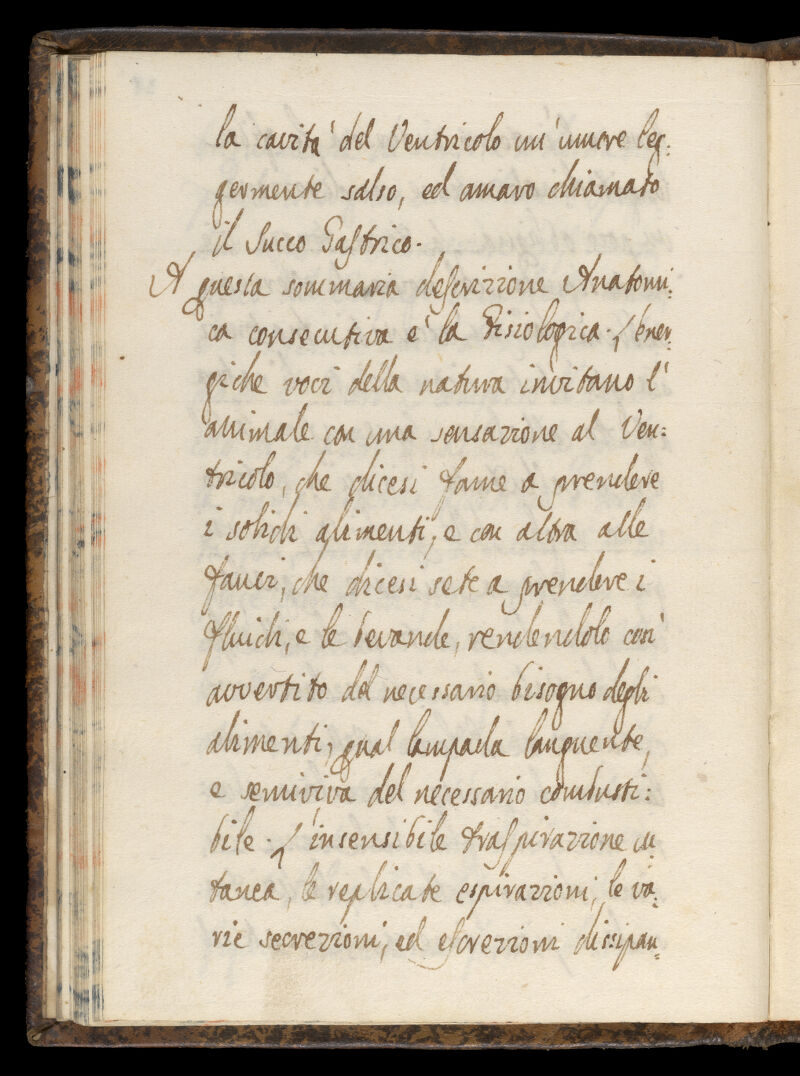 la cavità del Ventricolo un' umore leg:
germente salso, ed amaro chiamato
il Succo Gastrico.
A questa sommaria descrizione Anatomi:
ca consecutiva e' la Fisiologica. L' Ener:
giche voci della natura invitano l'
animale con una sensazione al Ven:
tricolo, che dicesi fame a prendere
i solidi alimenti, e con altra alle
fauci, che dicesi sete a prendere i
fluidi, e le bevande, rendendolo così
avvertito del necessario bisogno degli
alimenti, qual lampada languente,
e semiviva del necessario combusti:
bile. L' insensibile traspirazione cu:
tanea, le replicate espirazioni, le va:
rie secrezioni, ed escrezioni dissipan: